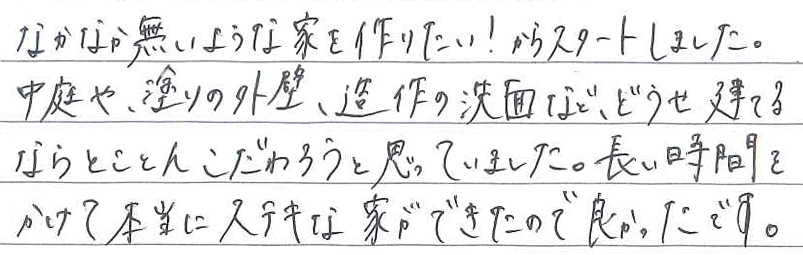 なかなか無いような家を作りたい！からスタートしました。
中庭や、塗りの外壁、造作の洗面など、どうせ建てる
ならとことんこだわろうと思っていました。長い時間を
かけて本当にステキな家ができたので良かったです。